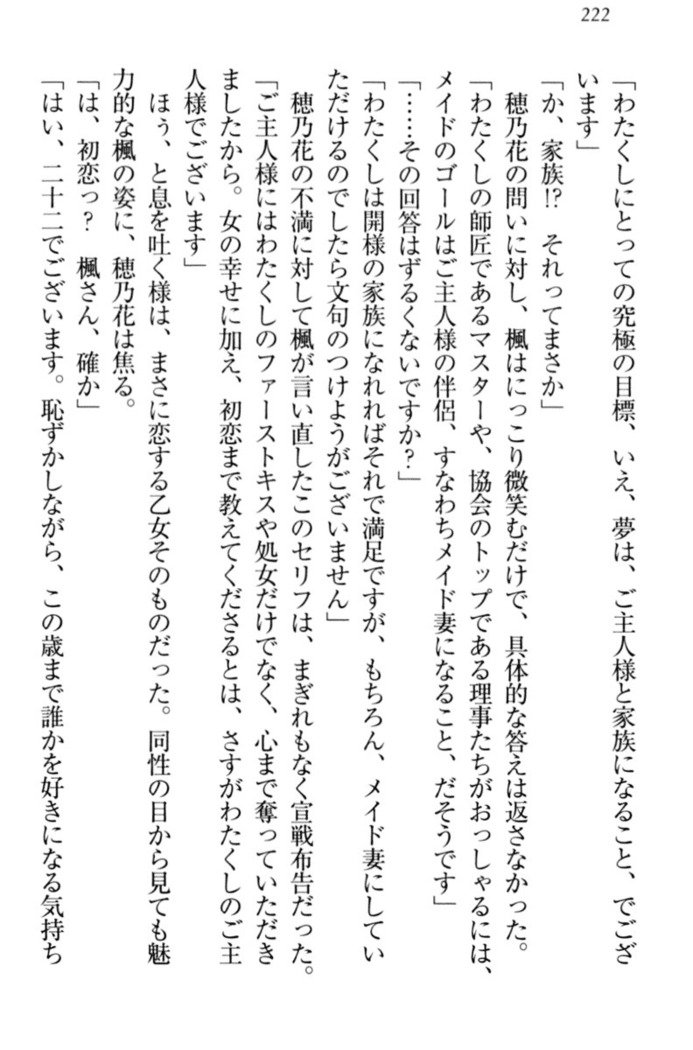 222
「わたくしにとっての究極の目標、いえ、夢は、ご主人様と家族になること、でござ
います」
「か、家族!?　それってまさか」
　穂乃花の問いに対し、楓はにっこり微笑むだけで、具体的な答えは返さなかった。
「わたくしの師匠であるマスターや、協会のトップである理事たちがおっしゃるには、
メイドのゴールはご主人様の伴侶、すなわちメイド妻になること、だそうです」
「……その回答はずるくないですか？」
「わたくしは開様の家族になれればそれで満足ですが、もちろん、メイド妻にしてい
ただけるのでしたら文句のつけようがございません」
　穂乃花の不満に対して楓が言い直したこのセリフは、まぎれもなく宣戦布告だった。
「ご主人様にはわたくしのファーストキスや処女だけでなく、心まで奪っていただき
ましたから。女の幸せに加え、初恋まで教えてくださるとは、さすがわたくしのご主
人様でございます」
　ほぅ、と息を吐く様は、まさに恋する乙女そのものだった。同性の目から見ても魅
力的な楓の姿に、穂乃花は焦る。
「は、初恋っ？　楓さん、確か」
「はい、二十二でございます。恥ずかしながら、この歳まで誰かを好きになる気持ち